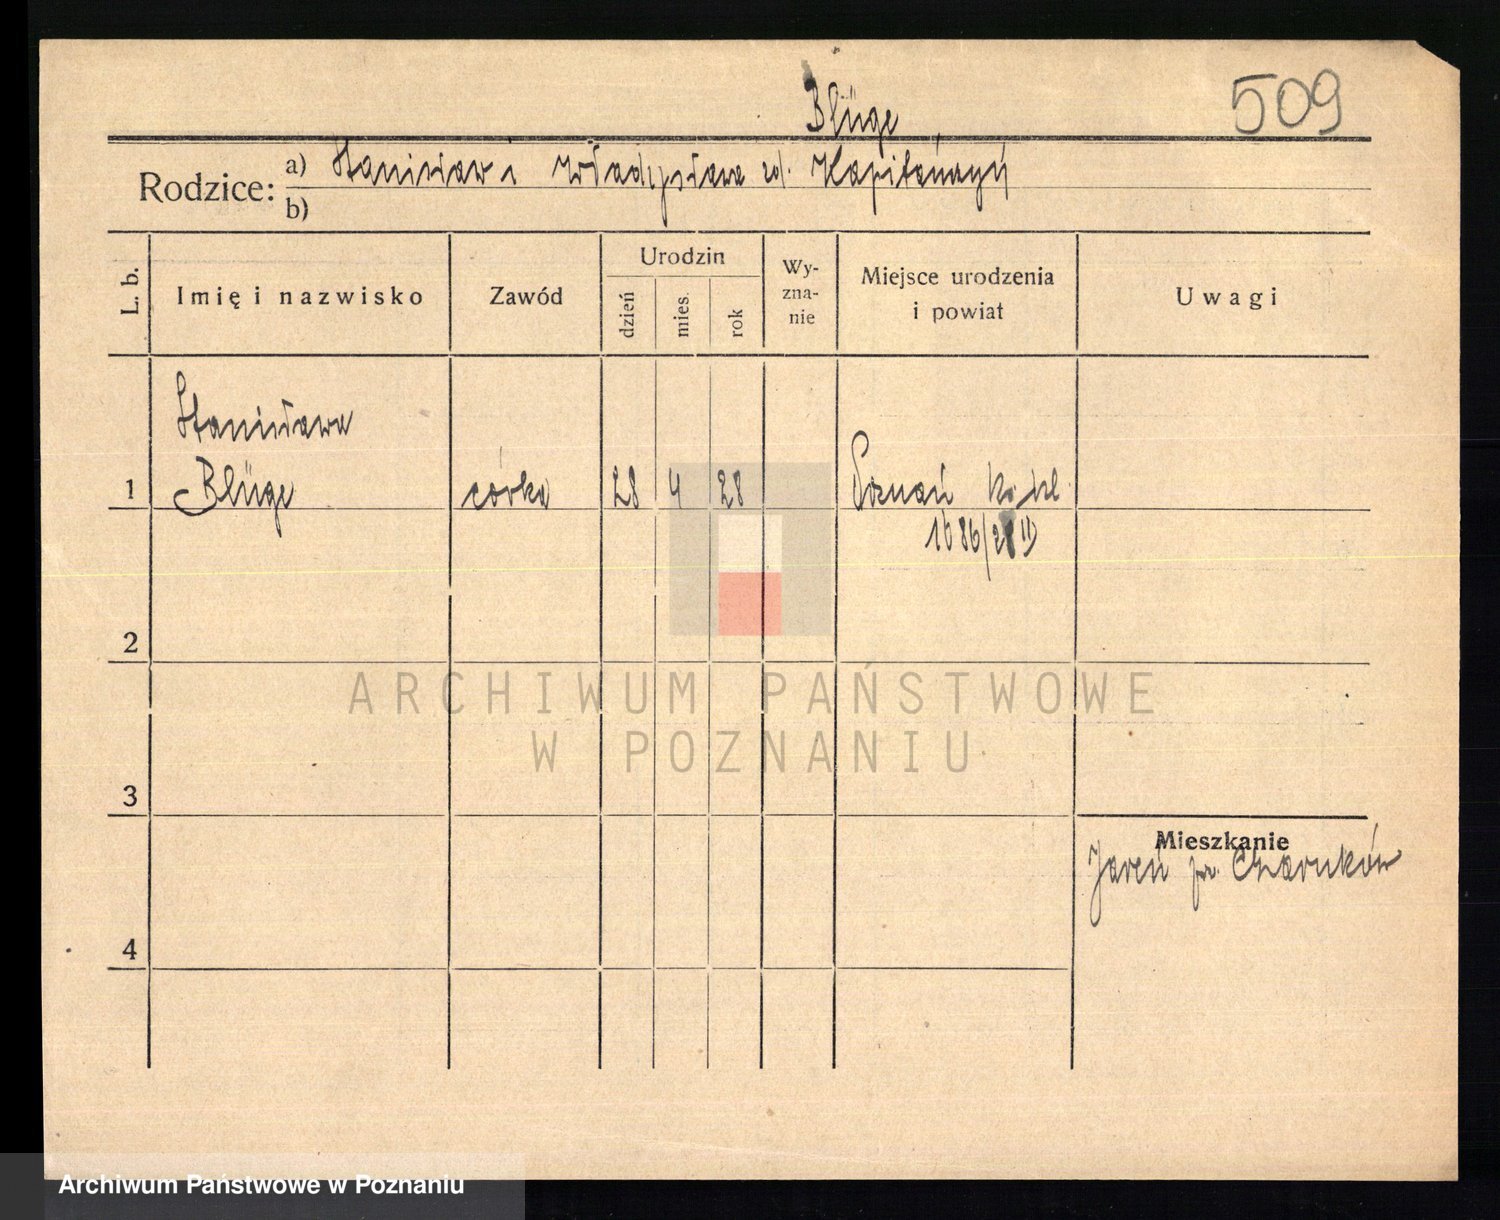 509
Blüge
Rodzice: a) Stanisław i Władysława zd.
b)
L. b.
Imię i nazwisko
Zawód
Urodzin
dzień
mies.
rok
Wy-
zna-
nie
Miejsce urodzenia
i powiat
Uwagi
Stanisława
1 Blüge córka 28 4 28 Poznań
1686/28 II
2
ARCHIWUM PAŃSTWOWE
W POZNANIU
3
Mieszkanie
Czarnków
4
Archiwum Państwowe w Poznaniu